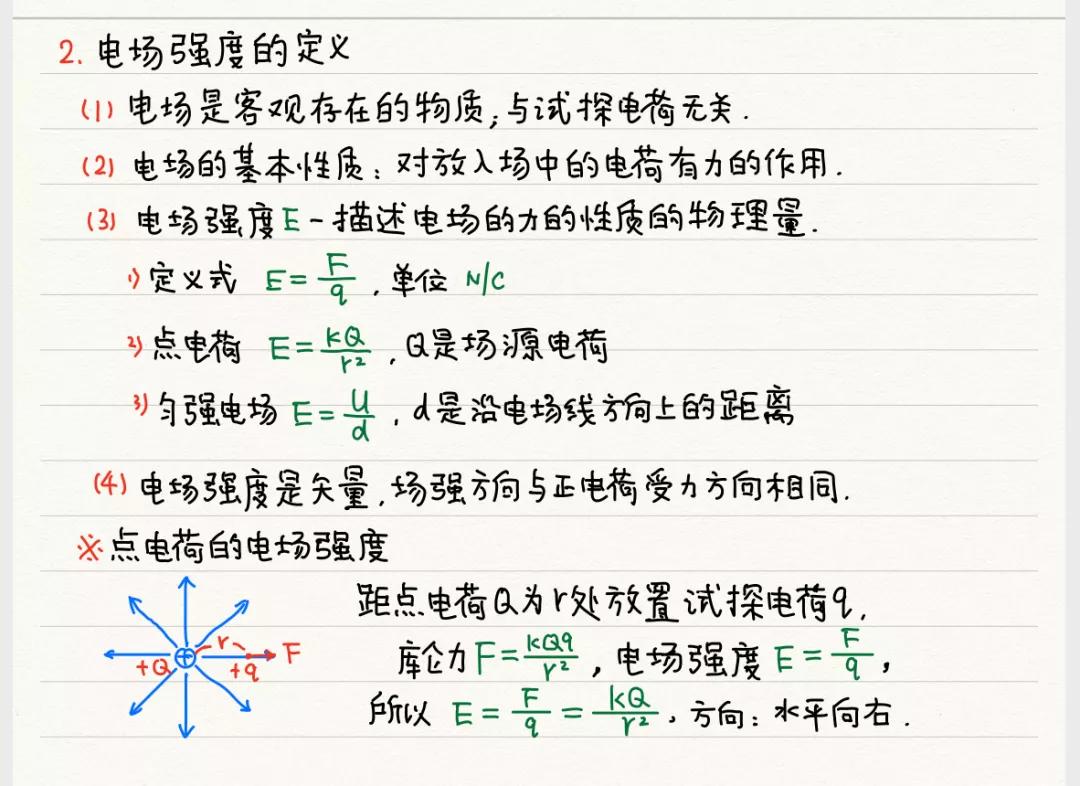 2. 电场强度的定义
(1) 电场是客观存在的物质,与试探电荷无关.
(2) 电场的基本性质:对放入场中的电荷有力的作用.
(3) 电场强度E-描述电场的力的性质的物理量.
1) 定义式 E=F/q , 单位 N/C
2) 点电荷 E=kQ/r² , Q是场源电荷
3) 匀强电场 E=U/d , d是沿电场线方向上的距离
(4) 电场强度是矢量,场强方向与正电荷受力方向相同.
※点电荷的电场强度
距点电荷Q为r处放置试探电荷q,
库仑力F=kQq/r² , 电场强度 E=F/q ,
所以 E=F/q=kQ/r² , 方向:水平向右.
+Q r +q F